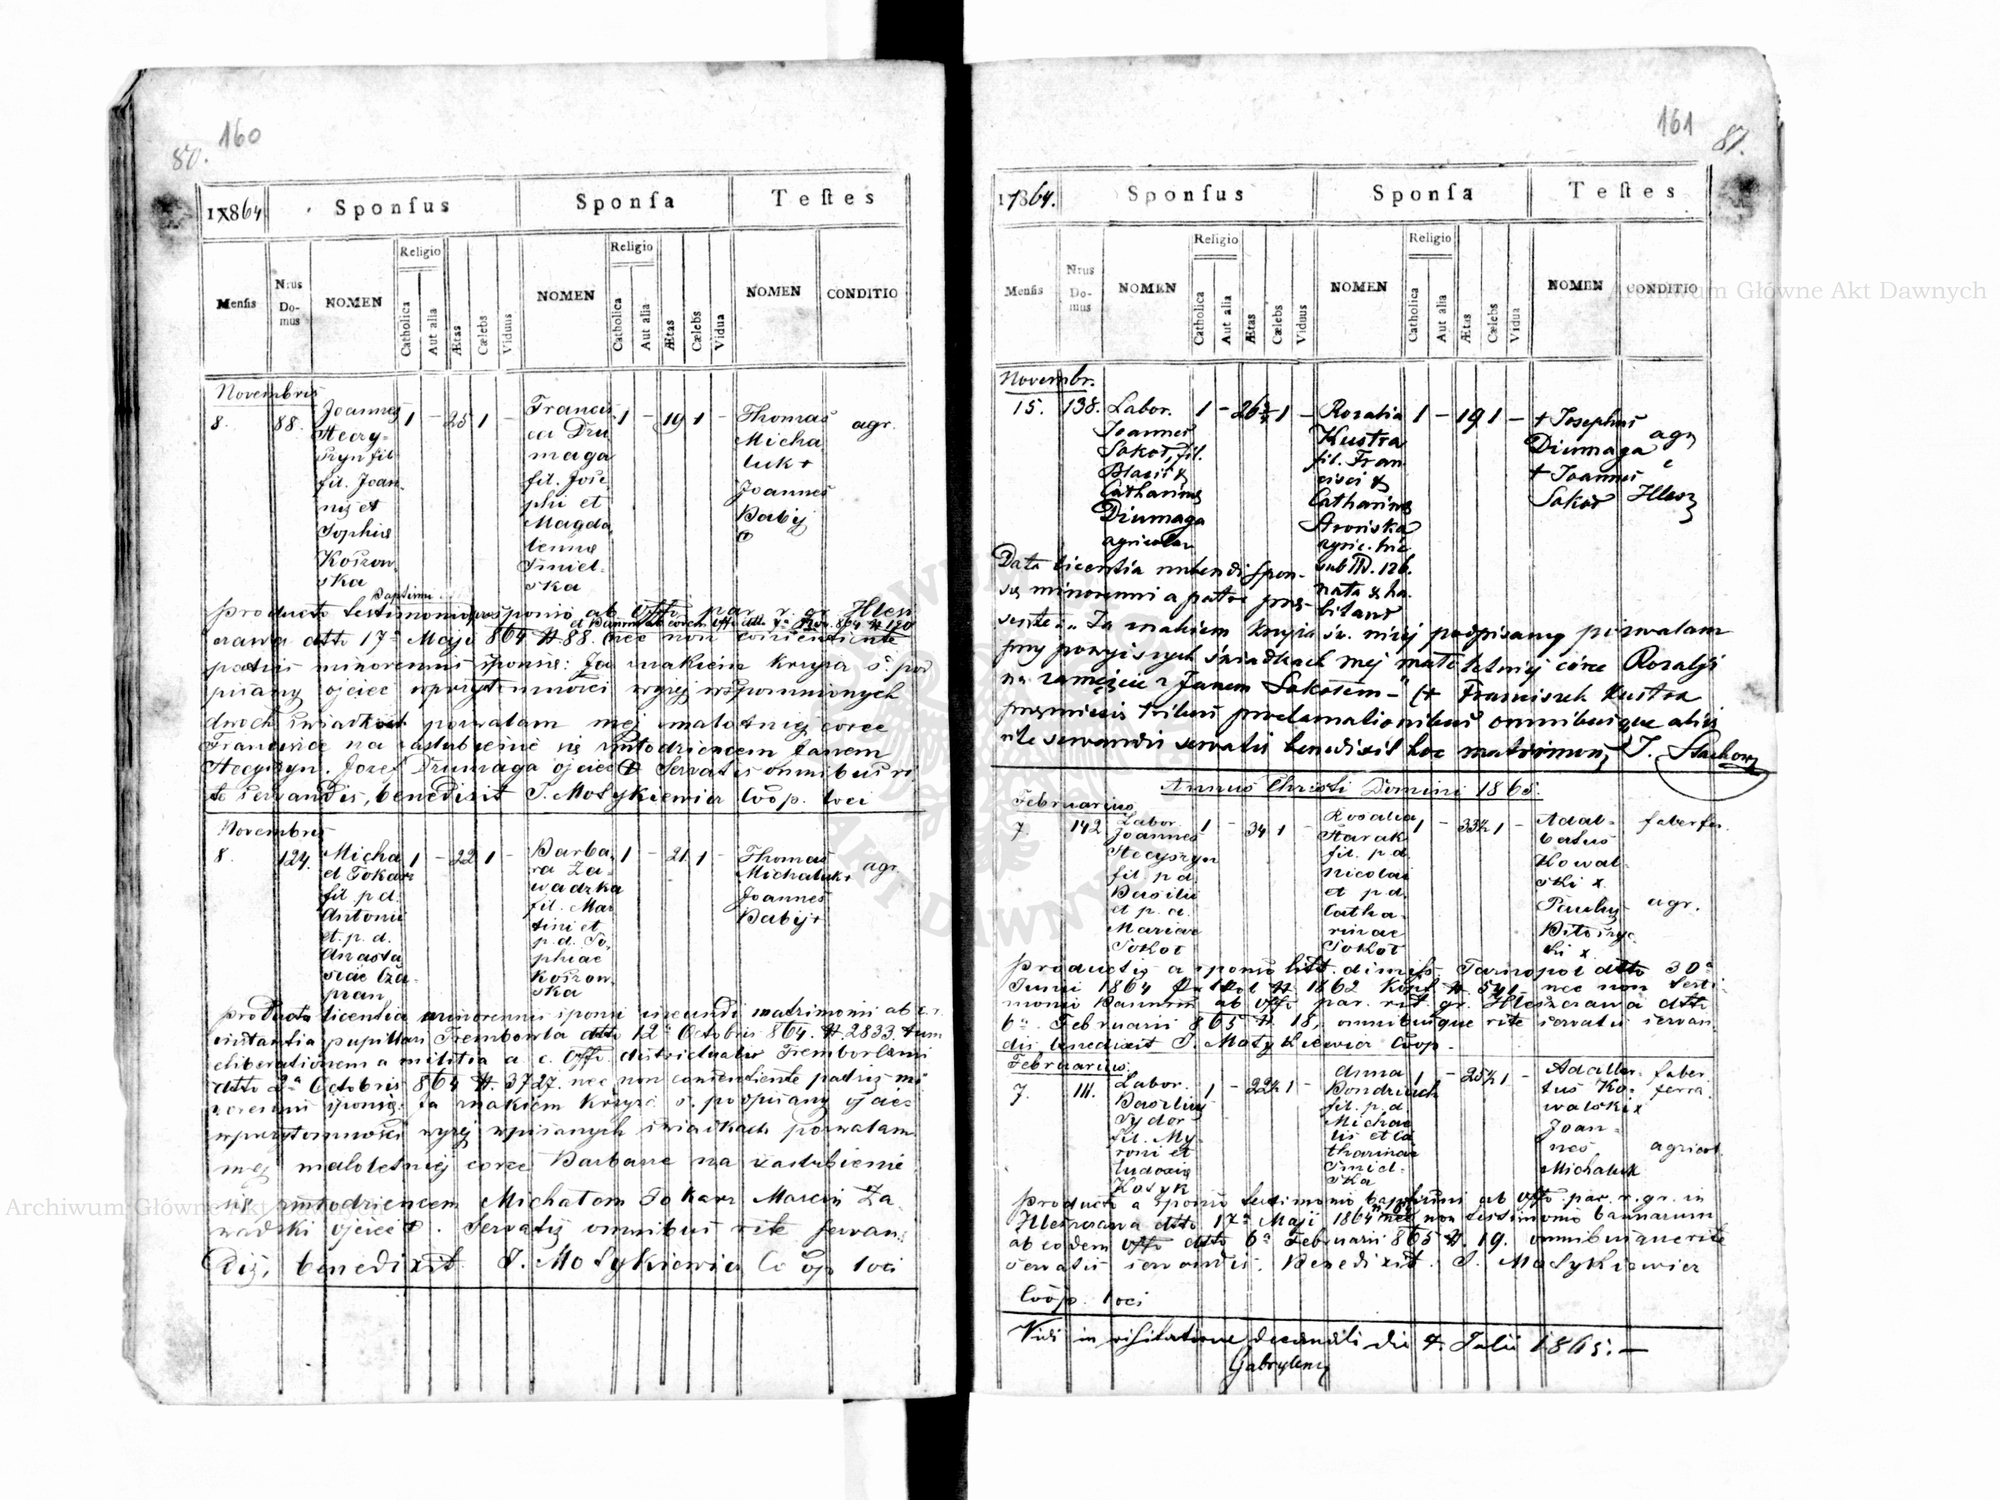 160
80.
1X864
Sponsus
Sponsa
Testes
Mensis
Nrus Do-mus
NOMEN
Religio
Catholica
Aut alia
Ætas
Cælebs
Viduus
NOMEN
Religio
Catholica
Aut alia
Ætas
Cælebs
Vidua
NOMEN
CONDITIO
Novembris
8.
88.
Joannes
Hecy-
szyn fil
fil. Joan-
nis et
Sophiæ
Koszow-
ska
1 - 25 1 -
Francis
ca Dziu
maga
fil. Jose
phi et
Magda
lennæ
Smiel-
ska
1 - 19 1 -
Thomas
Micha
luk +
Joannes
Babij
agr.
Baptismi
producto testimonio sponso ab Offo par. r. gr. Hlesz
czawa dtto 17a Maji 864 # 88. nec non consentiente
patris minorennis sponsæ: Ja znakiem krzyża ś. pod
pisany ojciec w przytomności wyżej wspomnionych
dwoch świadkow pozwalam mej małotniej corce
Francisce na zaślubienie się z młodzieńcem Janem
Hecyszyn. Jozef Dziumaga ojciec + Servatis omnibus ri
te servandis, benedixit J. Mosykiewicz Coop. loci
Novembris
8.
124.
Micha
el Tokarz
fil p d.
Antonii
et. p. d.
Anasta
siae Cza
pran
1 - 22 1 -
Barba
ra Za-
wadzka
fil. Mar
tini et
p. d. So-
phiae
Koszow-
ska
1 - 21 1 -
Thomas
Michaluk +
Joannes
Babij +
agr.
producta licentia minorennis sponsi ineundi matrimonii ab
instantia pupillari Trembowla dtto 12a Octobris 864. # 2833. tum
eliberationem a militia a c. Offo districtuali Trembowlensi
dtto 2a Octobris 864 #. 3727. nec non consentiente patris mi
norennis sponsæ. Ja znakiem krzyża ś. podpisany ojciec
w przytomności wyżej wpisanych świadkach pozwalam
mej małoletniej corce Barbarze na zaślubienie
się z młodzieńcem Michałem Tokarz Marcin Za
wadzki ojciec +. Servatis omnibus rite servan-
dis, benedixit J. Mosykiewicz Coop loci
161
81.
1864.
Sponsus
Sponsa
Testes
Mensis
Nrus Do-mus
NOMEN
Religio
Catholica
Aut alia
Ætas
Cælebs
Viduus
NOMEN
Religio
Catholica
Aut alia
Ætas
Cælebs
Vidua
NOMEN
CONDITIO
Novembr.
15.
138.
Labor.
Joannes
Sokoł, fil.
Blasii &
Catharinæ
Dziumaga
agricolar
1 - 26 3/4 1 -
Rozalia
Kustra
fil. Fran
cisci &
Catharinæ
Arońska
agric. hic
sub N. 126.
nata & ha
bitans
1 - 19 1 -
+ Josephus
Dziumaga
+ Joannes
Sokoł
agr
e
Hlesz
Data licentia nubendi spon-
sæ minorenni a patre præ-
sente: "Ja znakiem krzyża św. niżej podpisany pozwalam
przy powyższych świadkach mej małoletniej córce Rozalji
na zamęście z Janem Sokołem -" (+ Franciszek Kustra
præmissis tribus proclamationibus omnibusque aliis
rite servandis servatis benedixit hoc matrimon. J. Stachow
Annus Christi Domini 1865.
Februarius
7.
142
Labor.
Joannes
Hecyszyn
fil p d
Basilii
et p. d.
Mariae
Sokoł
1 - 34 1 -
Rosalia
Harak
fil. p d.
Nicolai
et p d.
Catha-
rinae
Sokoł
1 - 33½ 1 -
Adal-
bertus
Kowal-
ski x
Pauly
ski x
faber fer.
agr.
Productis a sponso litt. dimiss. Tarnopol dtto 30a
Junii 1864 1862 # 541 nec non testi-
monio Bannorum ab offo par. rit gr. Hleszczawa dtto
6a Februarii 865 #. 18, omnibusque rite servatis servan
dis benedixit J. Mosykiewicz Coop.
Februarius
7.
111.
Labor.
Basilius
Sydor
fil. My-
roni et
Eudoxiæ
Kosyk
1 - 22½ 1 -
Anna
Bondziuch
fil. p. d
Michae
lis et Ca
tharinae
Smiel-
ska
1 - 25½ 1 -
Adalber-
tus Ko-
walski x
Joan-
nes
Michaluk
faber
ferra.
agricol.
Producto a sponso testimonio baptismi ab offo par. r. gr. in
Hleszczawa dtto 17a Maji 1864 nec non testimonio bannorum
ab eodem offo dtto 6a Februarii 865 #. 19. omnibusque rite
servatis servandis. Benedixit. J. Mosykiewicz
Coop. loci
Vidi in visitatione decanali die 4. Julii 1865. -
Archiwum Główne Akt Dawnych
Archiwum Główne Akt Dawnych